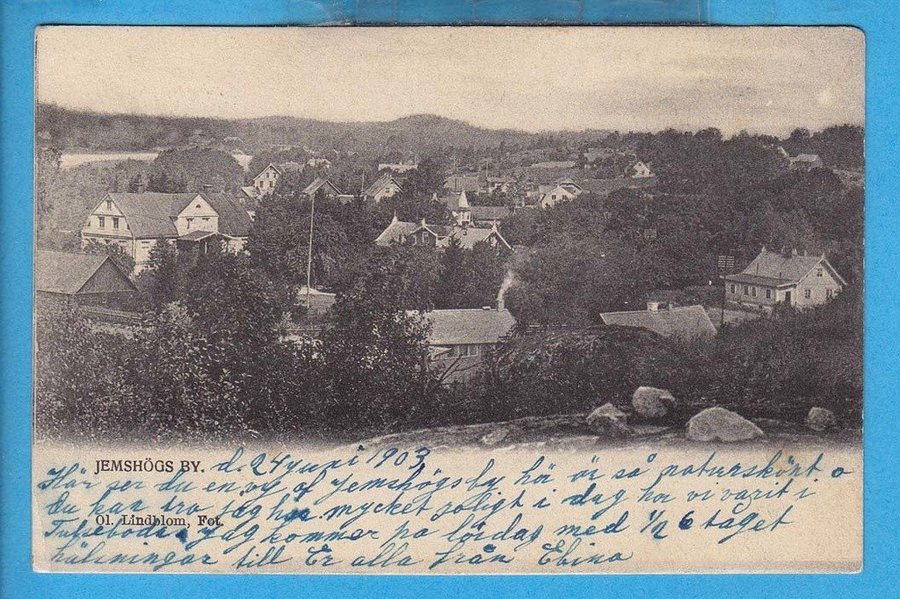 JEMSHÖGS BY. d. 24 Juni 1903
Här ser du en vy af Jemshögsby här är så naturskönt o
du kan tro jag har mycket roligt i dag har vi varit i
Ol. Lindblom, Fot.
jag kommer på lördag med 1/2 6 tåget
hälsningar till Er alla från Ebina